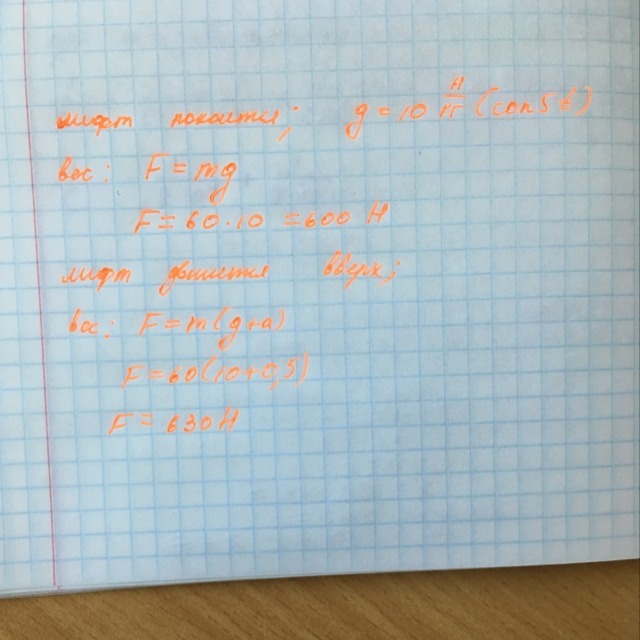 лифт покоится; g = 10 Н/кг (const)
вес: F = mg
F = 60 · 10 = 600 Н
лифт движется вверх;
вес: F = m(g+a)
F = 60(10+0,5)
F = 630 Н